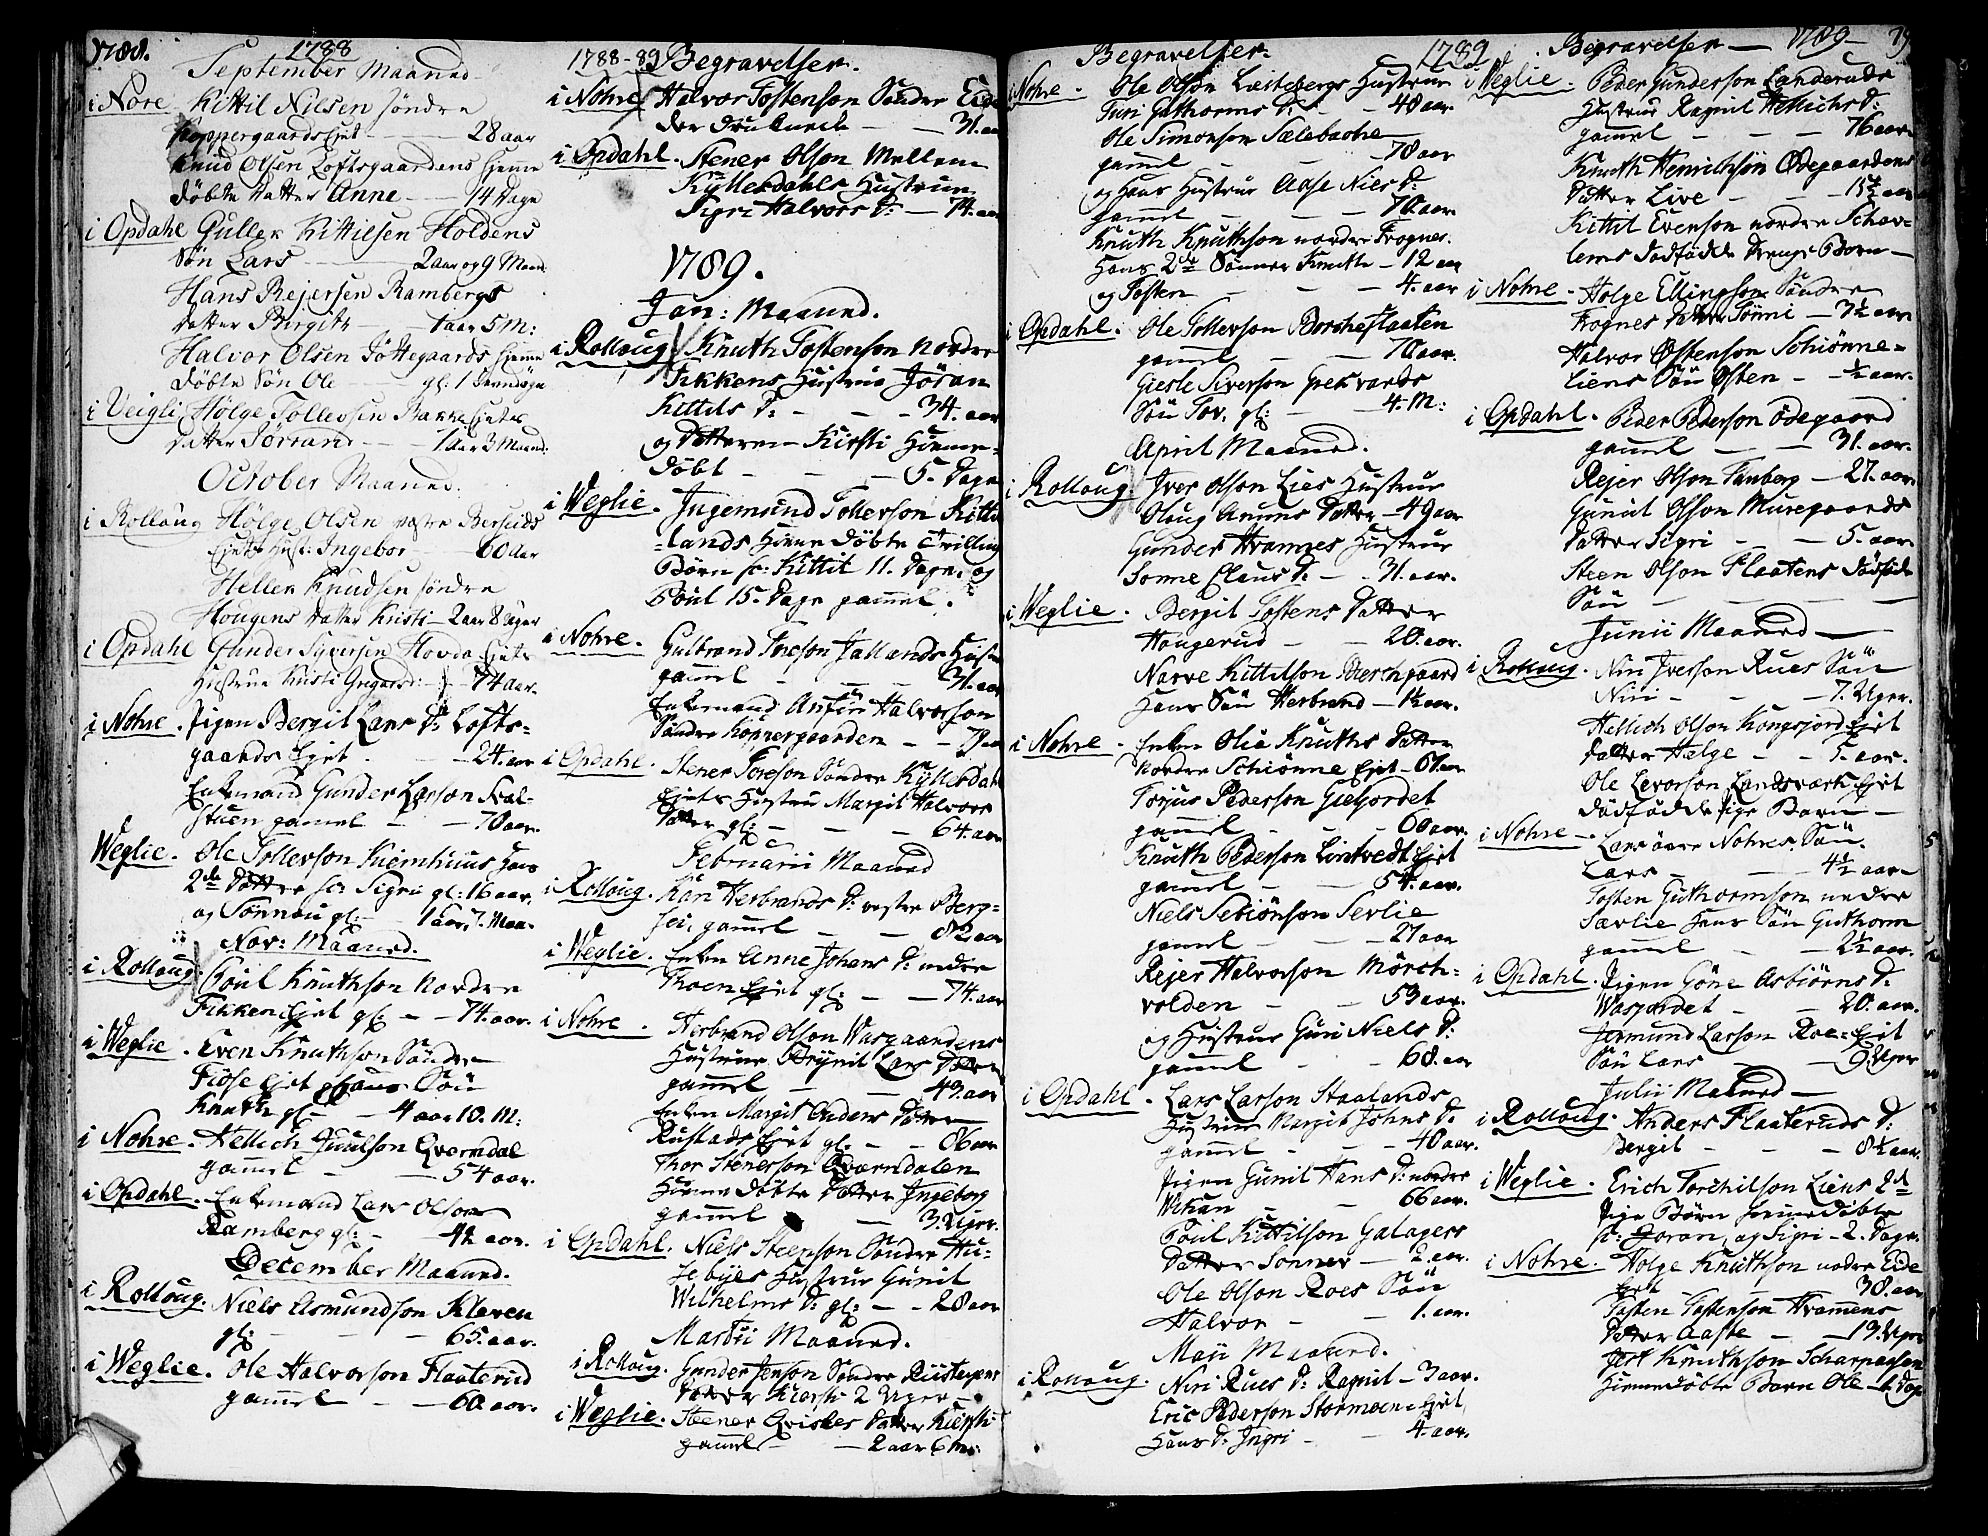 1788.
1788
September Maaned
i Nore Kittil Nilsen söndre
Koppergaards Ejet 28 aar
Knud Olsen Loftsgaardens hieme
döbte datter Anne 14 dage
i Opdahl Gullek Kittilsen Holdens
Sön Lars 2 aar og 9 Maan
Hans Rejersen Rambergs
datter Birgite 1 aar 5 M:
Halvor Olsen Töttegaards hieme
döbte Sön Ole gl: 1
i Veigli Hølge Tollevsen Bakke Ejets
datter Jörrand 7 aar 3 Maaned.
October Maaned.
i Rolloug Hølge Olsen vestre Berseids
Ejets Hust: Ingebor 60 aar
Hellek Knudsen söndre
Hougens datter Kristi 2 aar 8 uger
i Opdahl Gunder Syversen Hovda Ejets
Hustrue Kristi 74 aar.
i Nohre. Pigen Bergit Lars D: Lofts-
gaards Ejet 24. aar
Enkemand Gunder Larson Skal-
stuen gamel 70 aar.
Weglie. Ole Tollerson Kiemhuus hans
2de Döttre sc: Sigri gl: 16 aar.
og Sönnou gl: 1 aar, 7. Maa.
Nov: Maaned.
i Rolloug. Poul Knuthson Nordre
Fikken Ejet gl: 74. aar.
i Weglie. Even Knuthson Söndre
Fiöse Ejet hans Sön
Knuth gl: 4 aar 10. M:
i Nohre. Hellich Juulson Qverndal
gamel 54 aar.
i Opdahl. Enkemand Lars Olson
Ramberg gl: 42 aar.
December Maaned.
i Rolloug. Niels Asmundson Kleven
gl: 65. aar.
i Weglie. Ole Halvorson Flaaterud
gamel 60 aar.
1788-89 Begravelser.
i Nohre Halvor Tostenson Söndre Eide
der druknede 31. aar
i Opdahl. Stener Olson Mellem
Kyllesdahls Hustrue
Sigri Halvors D: 74. aar
1789.
Jan: Maaned.
i Rolloug Knuth Tostenson Nordre
Fikkens Hustrue Jöran
Kittils D: 34. aar
og Datteren Kirsti Hieme-
döbt 5. Dage
i Weglie. Ingemund Tollerson Kitti
-lands Hieme döbte Tvilling
Börn sc: Kittil 11. Dage og
Poul 15. Dage gamel.
i Nohre. Gulbrand Toreson Jallands Hustr
gamel 31. aar
Enkemand Anfin Halvorson
Söndre Koppergaarden 7
i Opdahl. Stener Toreson Söndre Kyllesdal
Ejets Hustru Margit Halvors
Datter gl: 64. aar
Februarii Maaned
i Rolloug. Kari Herbrands D: vestre Berg-
sei, gamel 82 aar
i Weglie. Enken Anne Johans D: nedre
Thoen Ejet gl: 74. aar
i Nohre. Herbrand Olson Wasgaardens
Hustrue Brynil Lars Datter
gamel 49. aar
Enken Margit Anders Datter
Rustads Ejet gl: 86 aar
Thor Stenerson Qværndalen
Hieme döbte Datter Ingeborg
gamel 3. Uger.
i Opdahl. Niels Steenson Söndre Hu-
sebyes Hustrue Gunil
Wilhelms D: gl: 28 aar
Martii Maaned.
i Rolloug. Gunder Jenson Söndre Riisteigens
Datter Kiersti 2 Uger
i Weglie. Steener Qvisles Datter Kiersti
gamel 2 aar 6 M:
Begravelser. 1789
i Nohre. Ole Olson Liestebergs Hustrue
Turi Guthorms D: 48 aar.
Ole Simonson Sælebache
gamel 78 aar
og Hans Hustrue Aase Niels D:
gamel 70. aar
Knuth Knuthson nordre Frognes.
Hans 2de Sönner Knuth 12 aar
og Tosten 4. aar
i Opdahl. Ole Tollerson Borcheflaaten
gamel 70 aar.
Giesle Siverson
Sön Tov. gl: 4. M:
April Maaned.
i Rolloug. Iver Olson Lies Hustrue
Oloug Anuns Datter 49 aar
Gunder Hvammes Hustrue
Sonne Claus D: 31. aar.
i Weglie. Bergit Tostens Datter
Haugerud 20. aar.
Narve Kittilson Berchgaard
Hans Sön Herbrand 1½ aar.
i Nohre. Enken Olia Knuths Datter
nordre Schiönne Ejet 61. aar
Torjus Pederson Giefjordet
gamel 60 aar.
Knuth Pederson Lintvedt Ejet
gamel 54. aar.
Niels Sebiönson Sevlie
gamel 27 aar
Rejer Halvorson Mörch-
volden 53 aar.
og Hustrue Guri Niels D:
gamel 68. aar
i Opdahl. Lars Larson Staalands
Hustrue Margit Johns D:
gamel 48 aar.
Pigen Gunil Hans D: nordre
Wikan 66 aar.
Poul Kittilson Galagers
Datter Sonnev 2. aar.
Ole Olson Roes Sön
Halvor 1. aar.
Maii Maaned.
i Rolloug. Niri Rues D: Ragnil 3 aar.
Eric Pederson Stormoen Ejet
Hans D: Ingri 4. aar.
Begravelser 1789
i Weglie. Peder Gunderson Landeruds
Hustrue Ragnil Hellichs D:
gamel 76 aar.
Knuth Henrichson Ödegaardens
Datter Live 15½ aar
Kittil Evenson nordre Schav-
lems dödfödde Drenge Barn
i Nohre. Holge Ellingson Söndre
Frognes Datter Sönni 3½ aar.
Halvor Østenson Schiönne-
liens Sön Østen ½ aar.
i Opdahl. Peder Pederson Ödegaard
gamel 31. aar.
Rejer Olson Tanberg 27. aar
Gunul Olson Muregaards
Datter Sigri 5. aar
Steen Olson Flaatens dödföd
Sön
Junii Maaned
i Rolloug. Niri Iverson Rues Sön
Niri 7. Uger.
Hellich Olson Kongsjord Ejet
Datter Helge 5. aar.
Ole Levorson Landsværk Ejet
dödfödde Pige Barn
i Nohre. Lars övre Nohres Sön.
Lars 4½ aar
Tosten Guthormson nedre
Sævlie Hans Sön Guthorm
gamel 2½ aar.
i Opdahl. Pigen Göne Asbiörns D:
Wasjordet 20. aar.
Jermund Larson Roe Ejet
Sön Lars 9. Uger
Julii Maaned
i Rolloug. Anders Flaateruds D:
Bergit 8½ aar.
i Weglie. Erich Torchilson Liens 2de
Pige Börn hiemedöbte
sc: Joran og Sigri 2. Dage.
i Nohre. Holge Knuthson nedre Eide
Ejet 38. aar
Tosten Tostenson Hvammens
Datter Aaste 19. Uger
Knuthson
Hiemedöbte Barn Ole 1. Dag